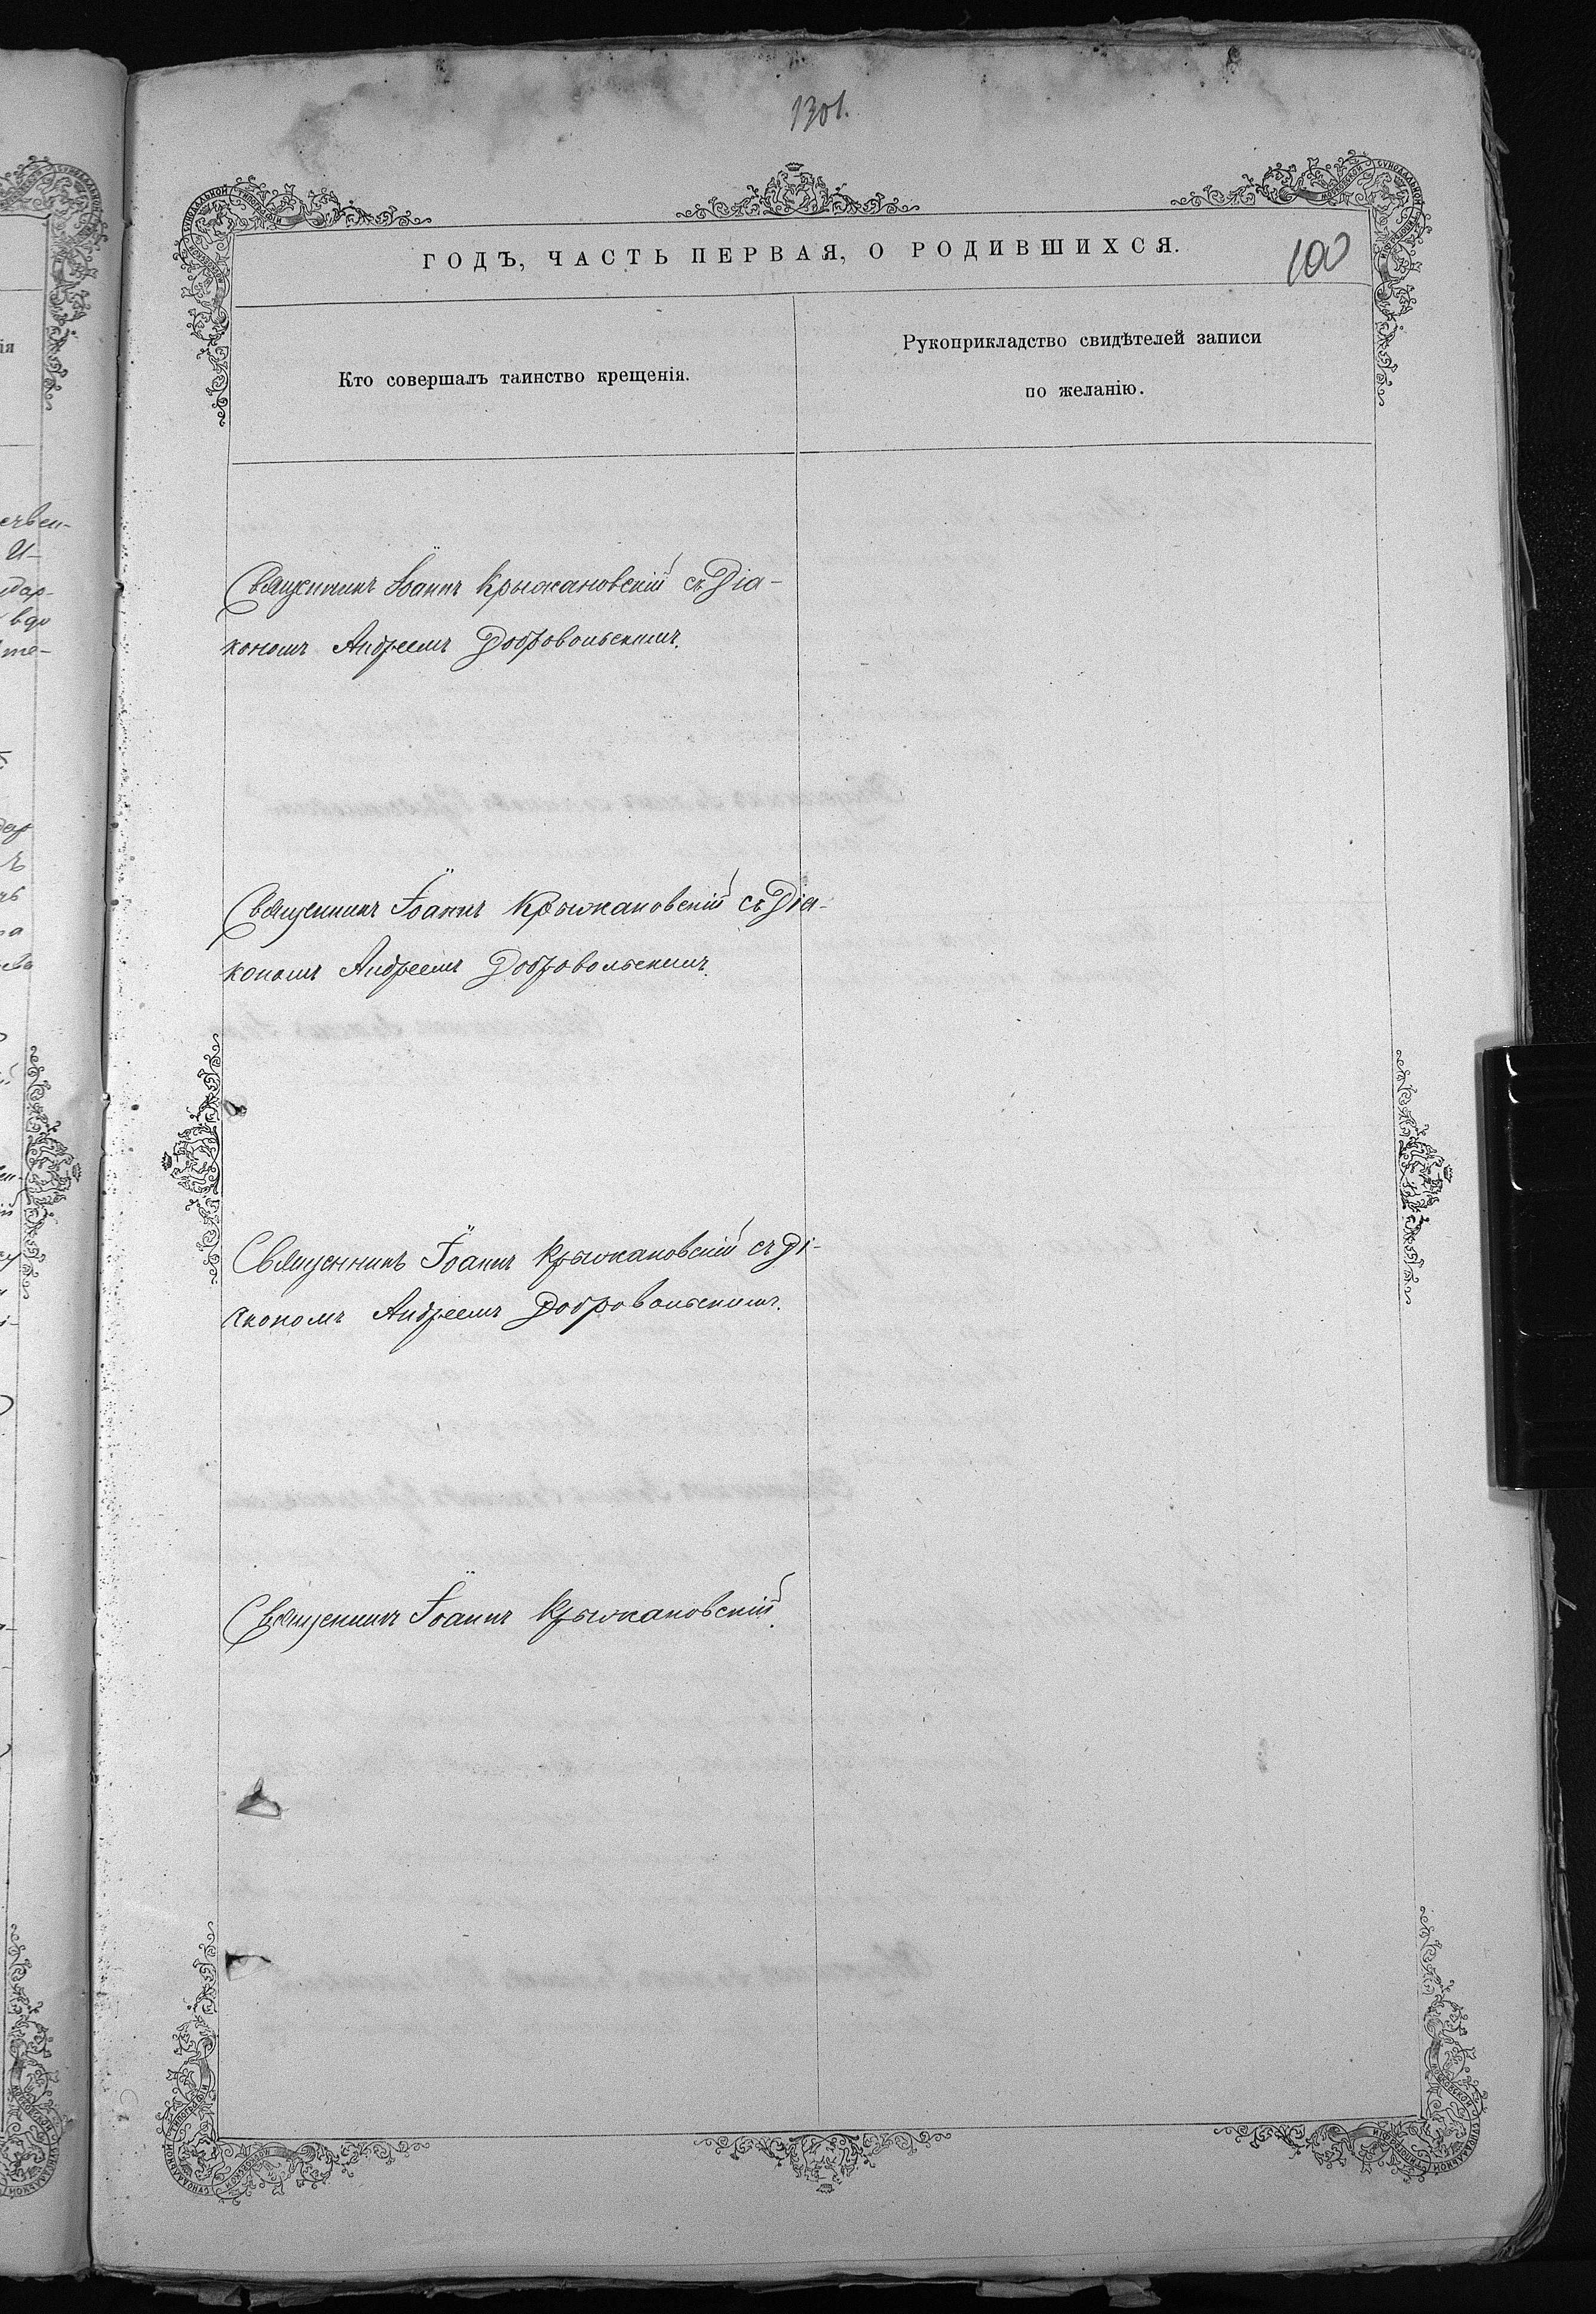 1301.
ГОДЪ, ЧАСТЬ ПЕРВАЯ, О РОДИВШИХСЯ.
100
Кто совершалъ таинство крещенія.
Рукоприкладство свидѣтелей записи
по желанію.
Священникъ Іоаннъ Крыжановскій съ Діа-
кономъ Андреемъ Добровольскимъ.
Священникъ Іоаннъ Крыжановскій съ Діа-
кономъ Андреемъ Добровольскимъ.
Священникъ Іоаннъ Крыжановскій съ Ді-
акономъ Андреемъ Добровольскимъ.
Священникъ Іоаннъ Крыжановскій.